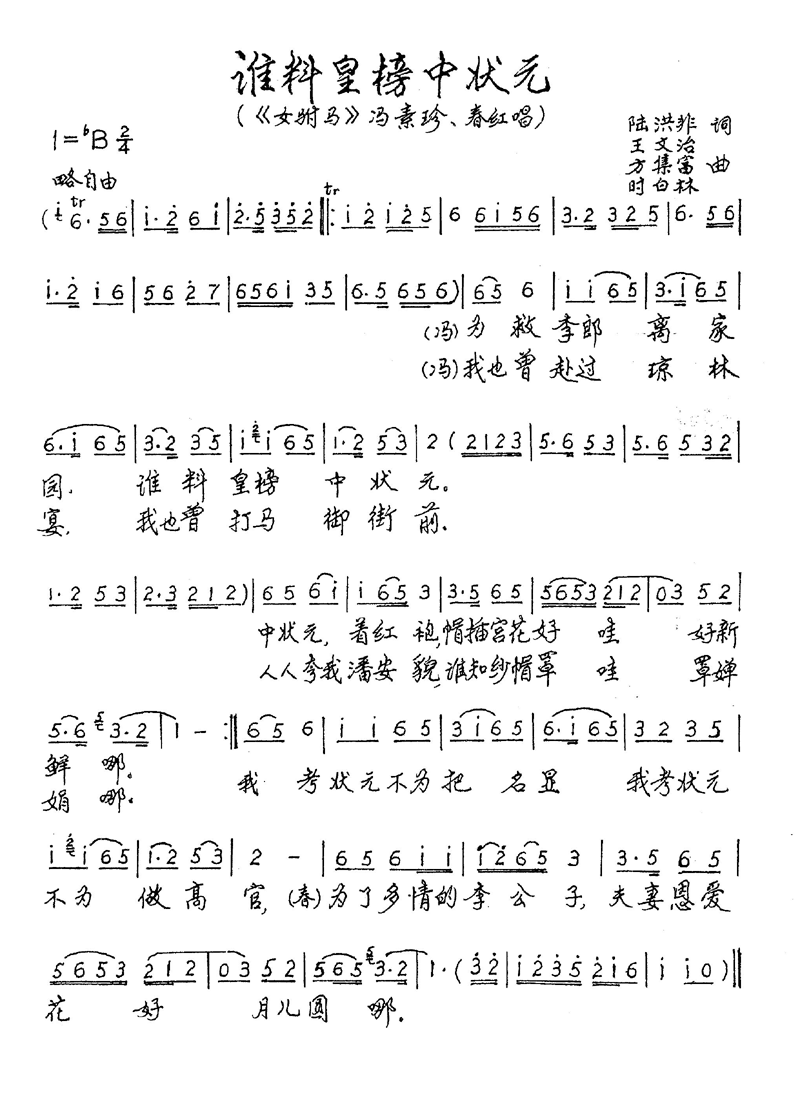 谁料皇榜中状元
(《女驸马》冯素珍、春红唱)
1=♭B 2/4
陆洪非 词
王文治
方集富 曲
时白林
略自由
(i tr 6·56|i·2 6i|2·5 3 5 2|: tr i2 i25|6 6i56|3·2 325|6· 56|
i·2 i6|56 27|656i 35|6·5 656)|65 6|ii 65|3·i 65|
(冯)为救李郎离家
(冯)我也曾赴过琼林
6·i 65|3·2 35|i 2 i 65|1·2 53|2 (2123|5·6 53|5·6 532|
园,谁料皇榜中状元。
宴,我也曾打马御街前。
1·2 53|2·3 212)|65 6i|i65 3|3·5 65|5653 212|03 52|
中状元,着红袍,帽插宫花好哇好新
人人夸我潘安貌,谁知纱帽罩哇罩婵
5·6 5 3·2|1 -:||65 6|ii 65|3i65|6·i65|32 35|
鲜哪。
娟哪。
我考状元不为把名显我考状元
i 2 i 65|1·2 53|2 -|65 6ii|i265 3|3·5 65|
不为做高官,(春)为了多情的李公子,夫妻恩爱
5653 212|03 52|565 5 3·2|1·(32|i235 216|i i0)||
花好月儿圆哪。